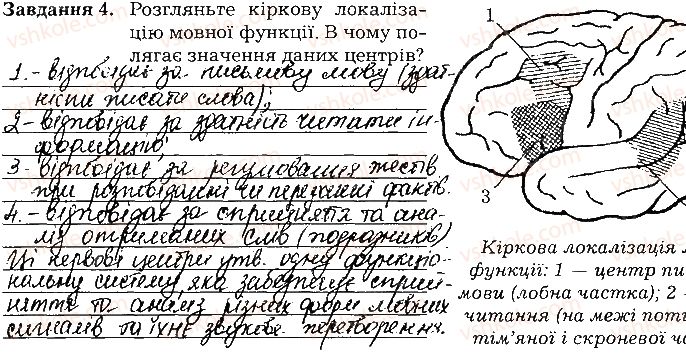 Завдання 4. Розгляньте кіркову локаліза-
цію мовної функції. В чому по-
лягає значення даних центрів?
1. - відповідає за письмову мову (здат-
ність писати слова);
2 - відповідає за здатність читати ін-
формацію;
3 - відповідає за регулювання жестів
при розповіданні чи переданні фактів.
4. - відповідає за сприйняття та ана-
ліз отриманих слів (подразників)
Ці нервові центри утв. одну функціо-
нальну систему яка забезпечує сприй-
няття та аналіз різних форм мовних
сигналів та їхнє звукове перетворення.
1
3
Кіркова локалізація
функції: 1 — центр пи
мови (лобна частка); 2 -
читання (на межі поти
тім'яної і скроневої ча